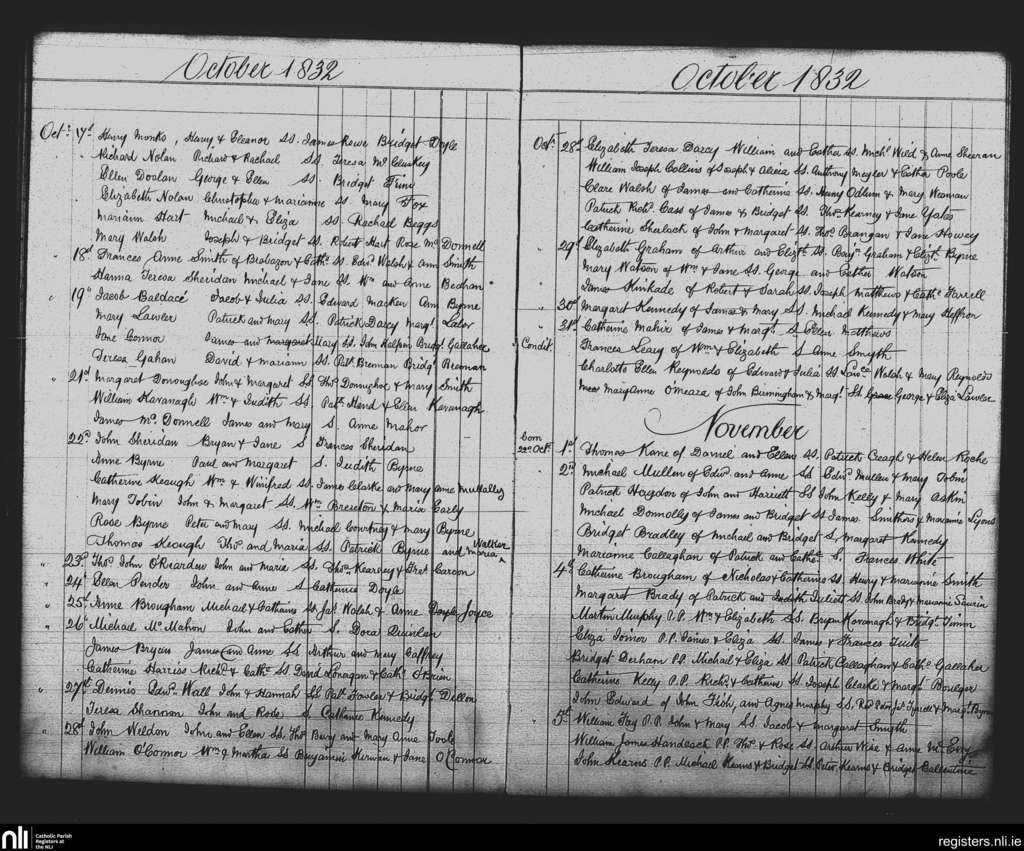 October 1832
Octr 17th Henry Monks, Henry & Eleanor SS. James Rowe Bridget Doyle
" Richard Nolan Richard & Rachael SS. Teresa McCluskey
Ellen Doolan George & Ellen SS. Bridget
" Elizabeth Nolan Christopher & Marianne SS. Mary Fox
Mariann Hart Michael & Eliza SS Rachael Beggs
Mary Walsh Joseph & Bridget SS. Robert Hart Rose McDonnell
" 18th Frances Anne Smith of Brabazon & Cathe SS. Edwd Walsh & Ann Smith
Hanna Teresa Sheridan Michael & Jane SS. Wm and Anne
" 19th Jacob Baldacé Jacob & Julia SS. Edward Macken Ann Byrne
Mary Lawler Patrick and Mary SS. Patrick Darcy Margt Lalor
Jane Connor James and Margaret Mary SS. John Halpin Bridgt Gallaher
Teresa Gahan David & Mariann SS. Patk Brennan Bridgt Brennan
" 21st Margaret Donoughoe John & Margaret SS. Thos Donughoe & Mary Smith
William Kavanagh Wm & Judith SS. Patk Hand & Ellen Kavanagh
James McDonnell James and Mary S. Anne Mahor
22nd John Sheridan Bryan & Jane S Frances Sheridan
Anne Byrne Paul and Margaret S. Judith Byrne
Catherine Keough Wm & Winifred SS. James Clarke and Mary Anne Mullally
Mary Tobin John & Margaret SS. Wm Brereton & Maria Carly
Rose Byrne Peter and Mary SS. Michael Courtney & Mary Byrne
Thomas Keough Thos and Maria SS. Patrick Byrne and Maria Walker
" 23rd Thos John O'Riardon John and Maria SS. Thos Kearney & Carson
" 24th Ellen Pender John and Anne S Catherine Doyle
" 25th Anne Brougham Michael & Catherine SS. Jas Walsh & Anne Doyle Joyce
" 26th Michael McMahon John and Esther S. Dora Quinlan
James Bryan James and Anne SS Arthur and Mary Caffrey
Catherine Harriss Richd & Cathe SS. David Lonagan & Cathe O'Brien
" 27th Dennis Edwd Wall John & Hannah SS Patk Fowler & Bridgt Dillon
Teresa Shannon John and Rose S Catherine Kennedy
" 28th John Weldon John and Ellen SS. Thos Bury and Mary Anne Toole
William O'Connor Wm & Martha SS Benjamin Kirwan & Jane O'Connor
October 1832
Octr 28th Elizabeth Teresa Darcy William and Esther SS. Michl Weld & Anne Sheeran
William Joseph Collins of Joseph & Alicia SS. Anthony Meyler & Esther Poole
Clare Walsh of James and Catherine SS. Henry Odlum & Mary
Patrick Richd Cass of James & Bridget SS. Thos Kearney & Jane Yeates
Catherine Sherlock of John & Margaret SS. Thos Brangan & Jane Howey
" 29th Elizabeth Graham of Arthur and Elizth SS. Benjn Graham & Elizth Byrne
Mary Watson of Wm & Jane SS. George and Esther Watson
James Kinkade of Robert & Sarah SS. Joseph Matthews & Cathe Farrell
" 30th Margaret Kennedy of James & Mary SS. Michael Kennedy & Mary Heffron
" 31st Catherine Mahir of James & Margt S Ellen Matthews
Condit. Frances Leary of Wm & Elizabeth S Anne Smyth
Charlotte Ellen Reynolds of Edward & Julia SS Lawce Walsh & Mary Reynolds
Mary Anne O'Meara of John Birmingham & Margt SS George & Eliza Lawler
November
born 22nd Octr 1st Thomas Kane of Daniel and Ellen SS. Patrick Creagh & Helen Roche
" 2nd Michael Mullen of Edwd and Anne SS Edwd Mullen & Mary Tobin
Patrick Haydon of John and Harriett SS John Kelly & Mary Askin
Michael Donnolly of James and Bridget SS James Smithers & Marianne Lyons
Bridget Bradley of Michael and Bridget S, Margaret Kennedy
Marianne Callaghan of Patrick and Cathe S. Frances White
" 4th Catherine Brougham of Nicholas & Catherine SS. Henry & Marianne Smith
Margaret Brady of Patrick and Judith Juliett SS. John Brady & Marianne Saurin
Martin Murphy P.P. Wm & Elizabeth SS. Bryan Kavanagh & Bridgt Timon
Eliza Tomor P.P. James & Eliza SS. James & Frances Tuite
Bridget Derham P.P. Michael & Eliza SS. Patrick Callaghan & Cathe Gallaher
Catherine Kelly P.P. Richd & Catherine SS. Joseph Clarke & Margt Boulger
John Edward of John Fish, and Agnes Murphy SS. Josh Tyrrell & Margt Byrne
" 5th William Fay P.P. John & Mary SS Jacob & Margaret Smyth
William James Handcock P.P. Thos & Rose SS. Arthur Wise & Anne McEvoy
John Kearns P.P. Michael Kearns & Bridget SS. Peter Kearns & Bridget Ballentine
nli Catholic Parish
Registers at
the NLI
registers.nli.ie